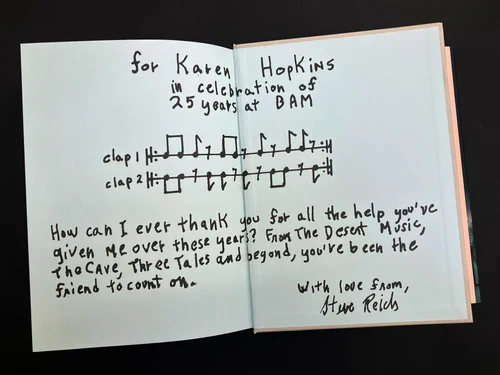 for Karen Hopkins
in celebration of
25 years at BAM
clap 1
clap 2
How can I ever thank you for all the help you've
given me over these years? From The Desert Music,
The Cave, Three Tales and beyond, you've been the
friend to count on.
With love from,
Steve Reich